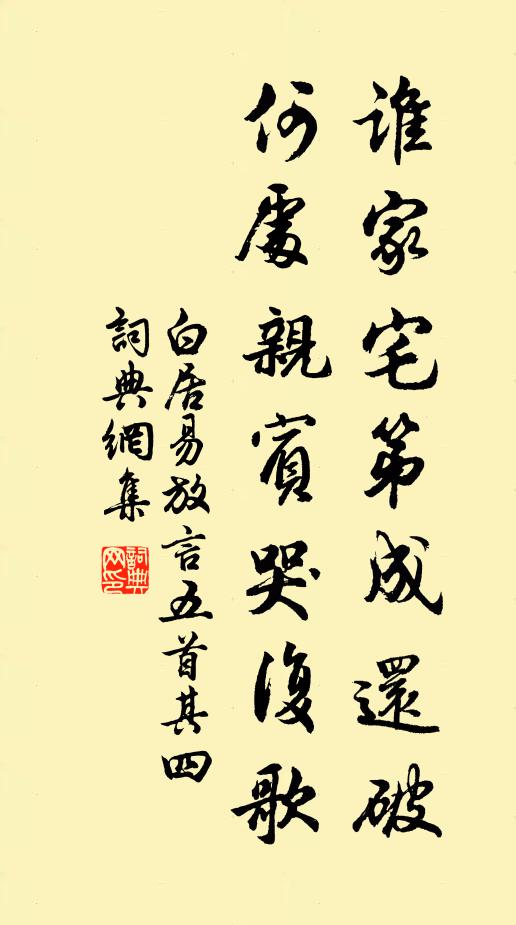 誰家宅第成還破
何處親賓哭復歌
白居易放言五首其四
詞典網集
詞典網印